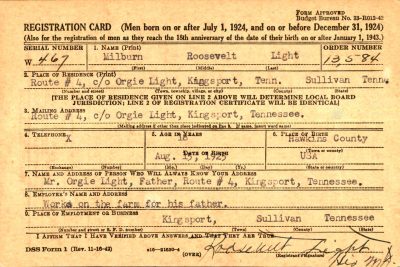 FORM APPROVED
Budget Bureau No. 33-R013-42
REGISTRATION CARD (Men born on or after July 1, 1924, and on or before December 31, 1924)
(Also for the registration of men as they reach the 18th anniversary of the date of their birth on or after January 1, 1943.)
SERIAL NUMBER 1. NAME (Print) ORDER NUMBER
W 467 Milburn Roosevelt Light 13584
(First) (Middle) (Last)
2. PLACE OF RESIDENCE (Print)
Route # 4, c/o Orgie Light, Kingsport, Tenn. Sullivan Tenn.
(Number and street) (Town, township, village, or city) (County) (State)
[THE PLACE OF RESIDENCE GIVEN ON LINE 2 ABOVE WILL DETERMINE LOCAL BOARD
JURISDICTION; LINE 2 OF REGISTRATION CERTIFICATE WILL BE IDENTICAL]
3. MAILING ADDRESS
Route # 4, c/o Orgie Light, Kingsport, Tennessee.
[Mailing address if other than place indicated on line 2. If same, insert word same]
4. TELEPHONE 6. PLACE OF BIRTH
X Hawkins County
DATE OF BIRTH
Aug. 15, 1925 USA
(Exchange) (Number) (Mo.) (Day) (Yr.) (State or country)
7. NAME AND ADDRESS OF PERSON WHO WILL ALWAYS KNOW YOUR ADDRESS
Mr. Orgie Light, Father, Route # 4, Kingsport, Tennessee.
8. EMPLOYER'S NAME AND ADDRESS
Works on the farm for his father.
9. PLACE OF EMPLOYMENT OR BUSINESS
Kingsport, Sullivan Tennessee
(Number and street or R. F. D. number) (Town) (County) (State)
I AFFIRM THAT I HAVE VERIFIED ABOVE ANSWERS AND THAT THEY ARE TRUE.
DSS Form 1 (Rev. 11-16-42) 16-21630-4 (OVER) Roosevelt Light
(Registrant's signature) His Mark